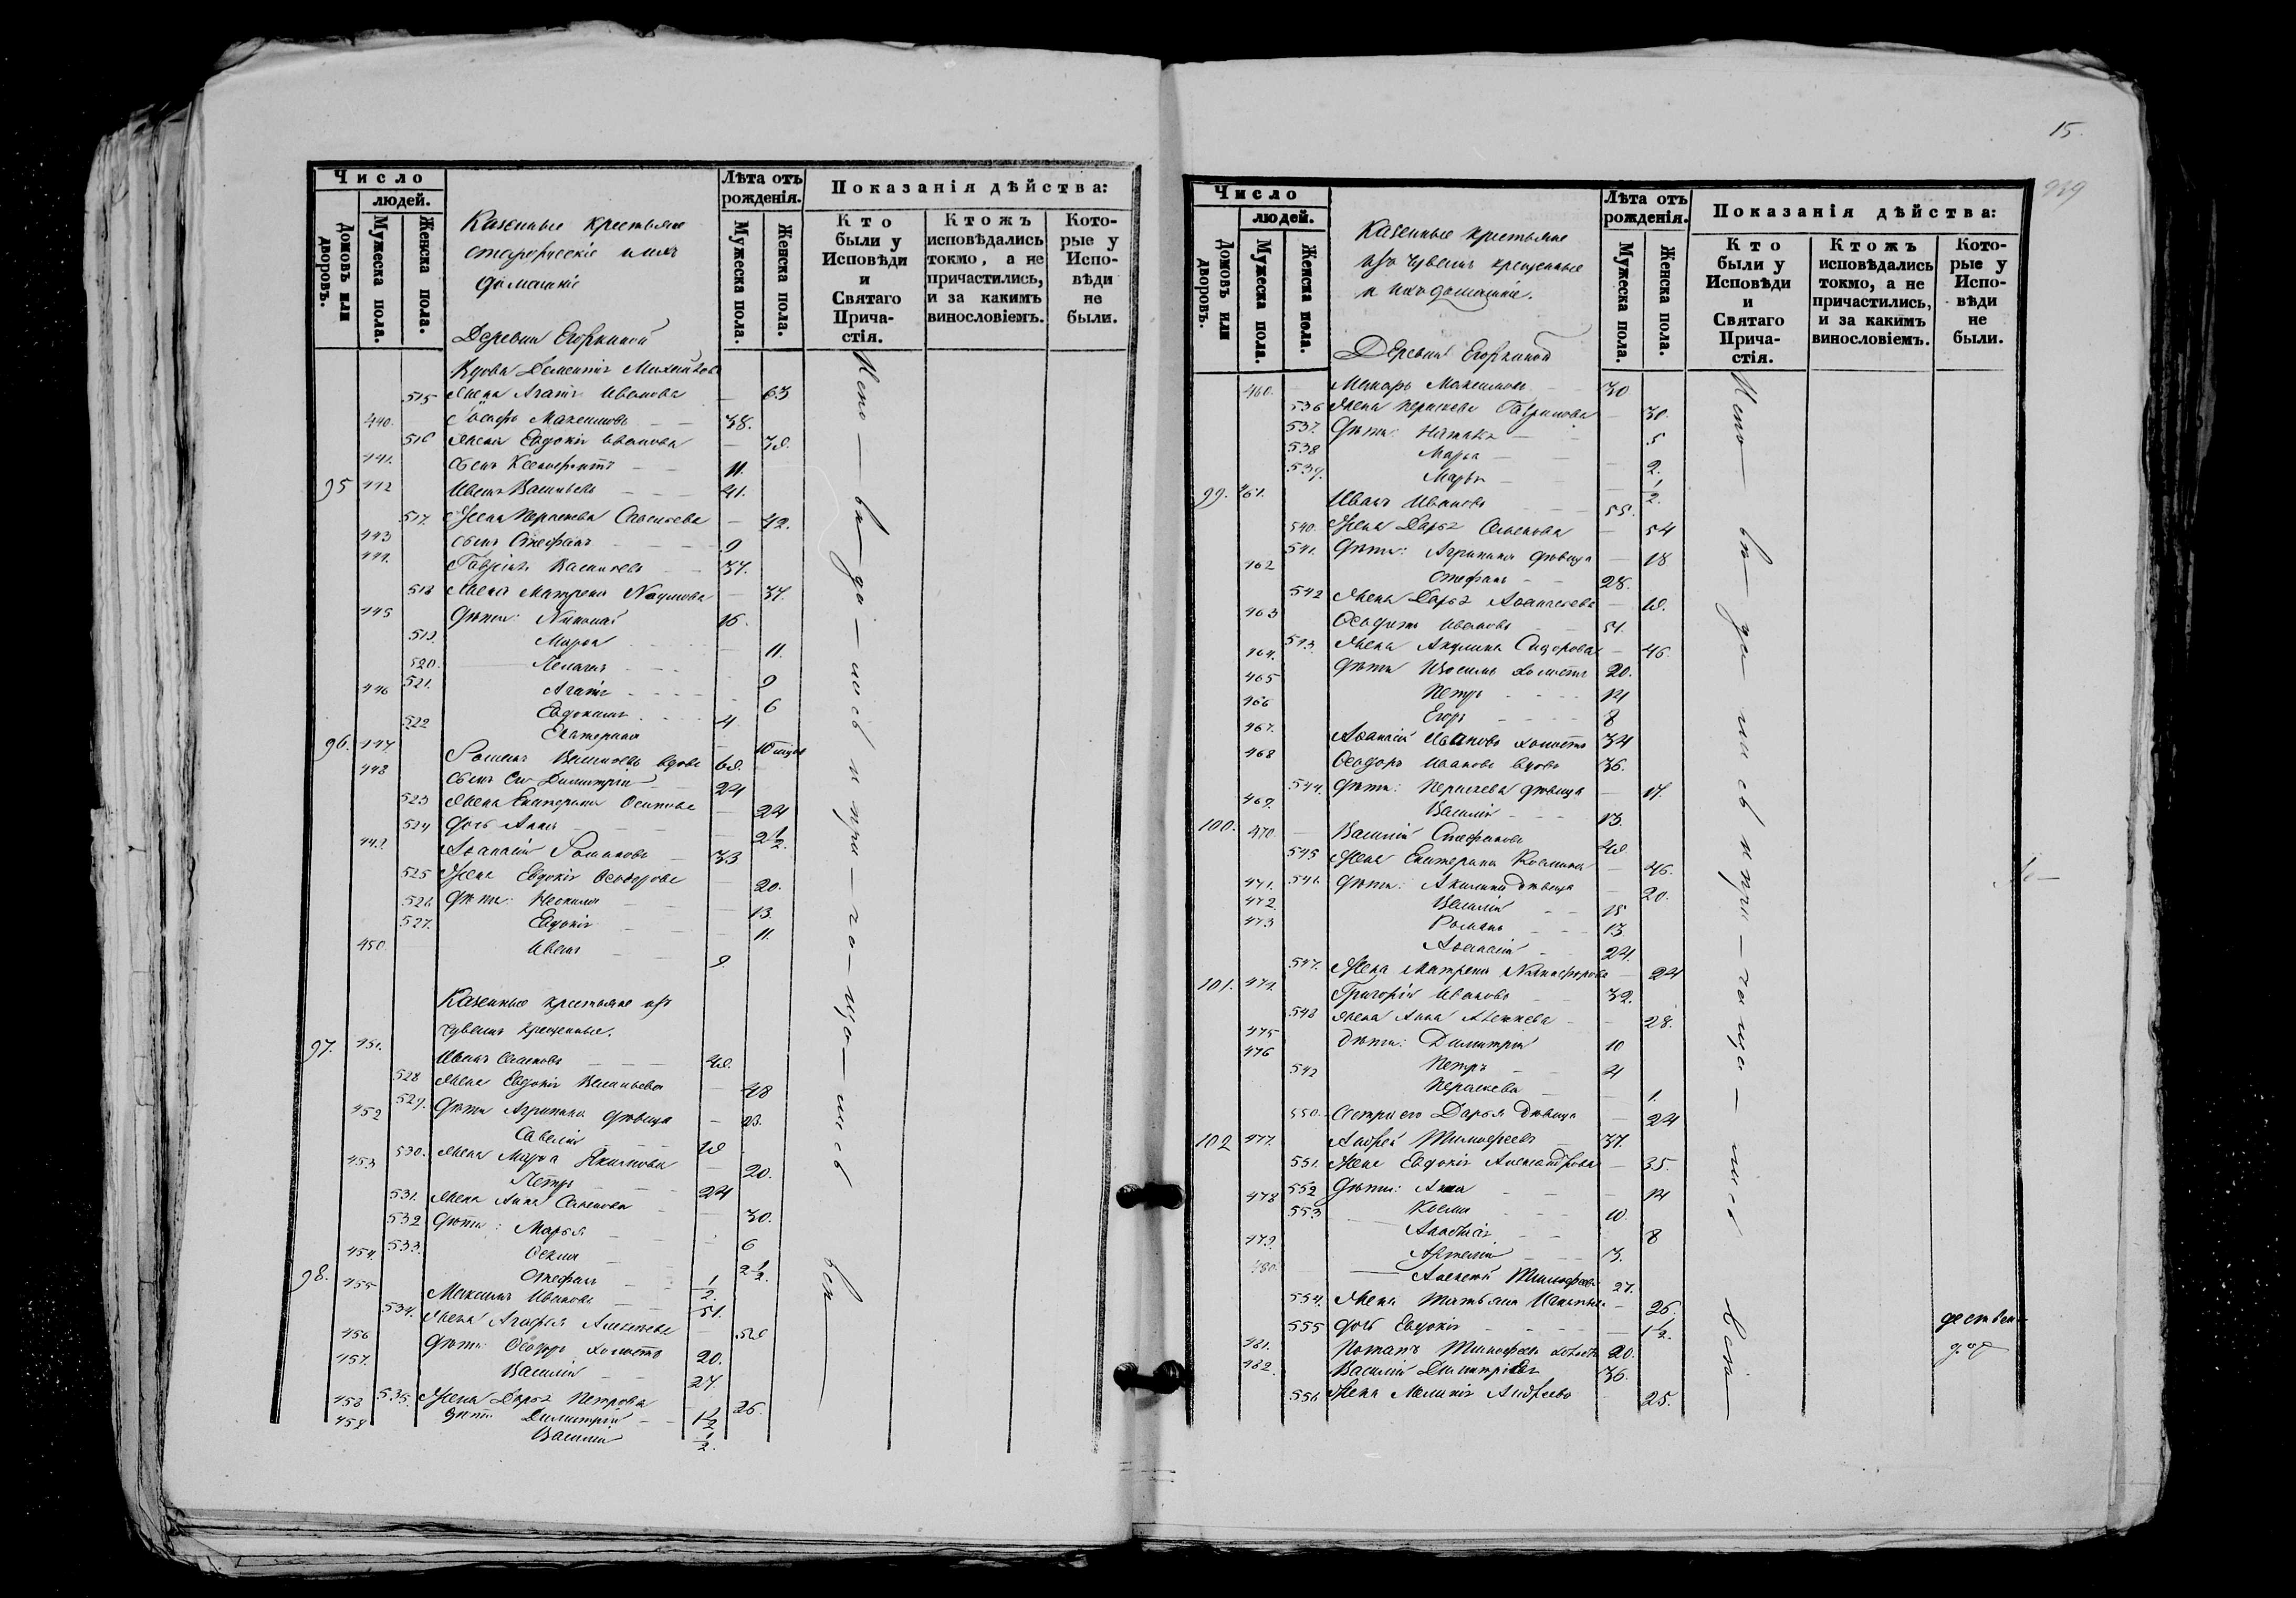 Число
людей.
Домовъ или дворовъ.
Мужеска пола.
Женска пола.
Казенные крестьяне
домашніе
Деревни Егоркиной
Лѣта отъ рожденія.
Мужеска пола.
Женска пола.
Показанія дѣйства:
Кто были у Исповѣди и Святаго Прича-стія.
Ктожъ исповѣдались токмо, а не причастились, и за какимъ винословіемъ.
Кото-рые у Испо-вѣди не были.
Вдова Дементія Михайлова
515 Жена Агафія Иванова — 63
440. Максимовъ — 38.
516 Жена Евдокія Иванова —
441. Сынъ Ксенофонтъ — 11.
95 442 Иванъ Васильевъ — 41.
517. Жена Параскева Савельева — 42.
443 сынъ Стефанъ — 9
444. Гавріилъ Васильевъ — 37.
518 Жена Матрена Наумова — 37.
445 Дѣти: Николай 16.
519. Марѳа 11.
520. Пелагія 9
521. Агафія 6
446 Евдокимъ 4
522 Екатерина
96. 447. Романъ Васильевъ вдовъ
448 Сынъ Димитрій 24
523 Жена Екатерина Осипова 24
524 дочь Анна 2 1/2.
449. Аѳанасій Романовъ 33
525 Жена Евдокія Ѳеодорова 20.
526 Дѣти: 13.
527. Евдокія 11.
450. Иванъ 9.
Казенные крестьяне изъ
чувашъ крещенные.
97. 451. Иванъ Семеновъ
528 Жена Евдокія Васильева 48
529. Дѣти Агрипина дѣвица 23.
452 Савелій
530. Жена Марѳа Якимова 20.
453 Петръ 24
531. Жена Анна Семенова 30.
532 дѣти: Марья 6
533. Ѳекла 2 1/2.
454. Стефанъ 1/2.
98. 455 Максимъ Ивановъ 51.
534. Жена Агафья Алексѣева
456 Дѣти: Ѳеодоръ холостъ 20.
457. Василій 27.
535. Жена Дарья Петрова 26.
458 дѣти Димитрій 1 1/2
459 Василій 1/2.
15.
939
Число
людей.
Домовъ или дворовъ.
Мужеска пола.
Женска пола.
Казенные крестьяне
изъ чувашъ крещенные
и ихъ домашніе.
Деревни Егоркиной
Лѣта отъ рожденія.
Мужеска пола.
Женска пола.
Показанія дѣйства:
Кто были у Исповѣди и Святаго Прича-стія.
Ктожъ исповѣдались токмо, а не причастились, и за какимъ винословіемъ.
Кото-рые у Испо-вѣди не были.
460. Макаръ Максимовъ 30
536 Жена Параскева Гаврилова — 30.
537. Дѣти: 5
538 Марѳа 2.
539. Марья 1/2.
99. 461. Иванъ Ивановъ 55.
540. Жена Дарья Семенова — 54
541. Дѣти: Агрипина дѣвица — 18
462 Стефанъ 28.
542 Жена Дарья Аѳанасьева —
463 Ѳеодотъ Ивановъ 51.
543. Жена Акулина Сидорова — 46.
464. Дѣти холостъ 20.
465 Петръ 14
466 Егоръ 8
467. Аѳанасій Ивановъ холостъ 34
468 Ѳеодоръ Ивановъ вдовъ 36.
544. Дѣти: Параскева дѣвица — 17.
469. Василій 13.
100. 470. Василій Стефановъ
545 Жена Екатерина Козмина — 46.
546. Дѣти: Акилина дѣвица — 20.
471. Василій 15
472. Романъ 13
473 Аѳанасій 24
547. Жена Матрена Никифорова — 24
101. 474. Григорій Ивановъ 32.
548 Жена Анна Алексѣева — 28.
475 Дѣти: Димитрій 10
476 Петръ 4
549 Параскева — 1.
550. Сестра его Дарья дѣвица — 24
102 477. Андрей Тимофеевъ 37.
551. Жена Евдокія Александрова — 35.
552 Дѣти: Анна — 14
478 Козма 10.
553 Анастасія 8
479. 3.
480. Алексѣй Тимофеевъ 27.
554. Жена Татьяна 26
555 дочь Евдокія 1 1/2.
481. Романъ Тимофеевъ холостъ 20.
482. Василій Димитріевъ 36.
556. Жена Меланія Андреева 25.